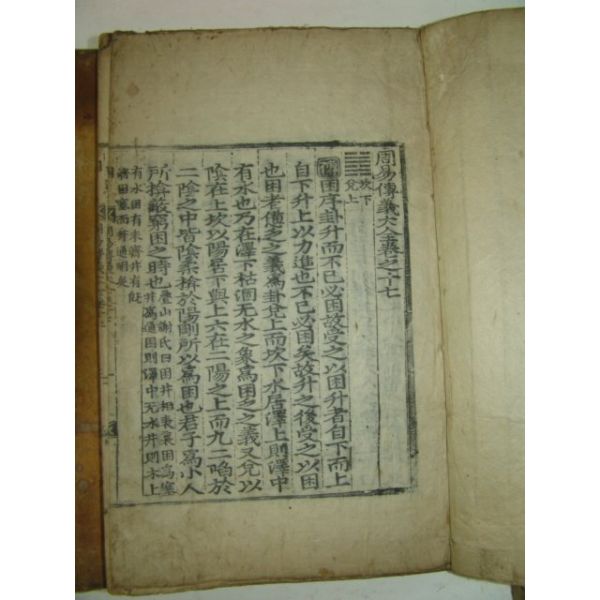 周易傳義大全卷之十七
坎下
兌上
傳困序卦升而不已必困故受之以困升者自下而上
自下升上以力進也不已必困矣故升之後受之以困
也困者憊乏之義爲卦兌上而坎下水居澤上則澤中
有水也乃在澤下枯涸无水之象爲困乏之義又兌以
陰在上坎以陽居下與上六在二陽之上而九二陷於
二陰之中皆陰柔揜於陽剛所以爲困也君子爲小人
所揜蔽窮困之時也疊山謝氏曰困井相乗困爲塞
井爲通困則澤中无水井則木上
有水困有未濟井有旣
濟困塞而井通明矣